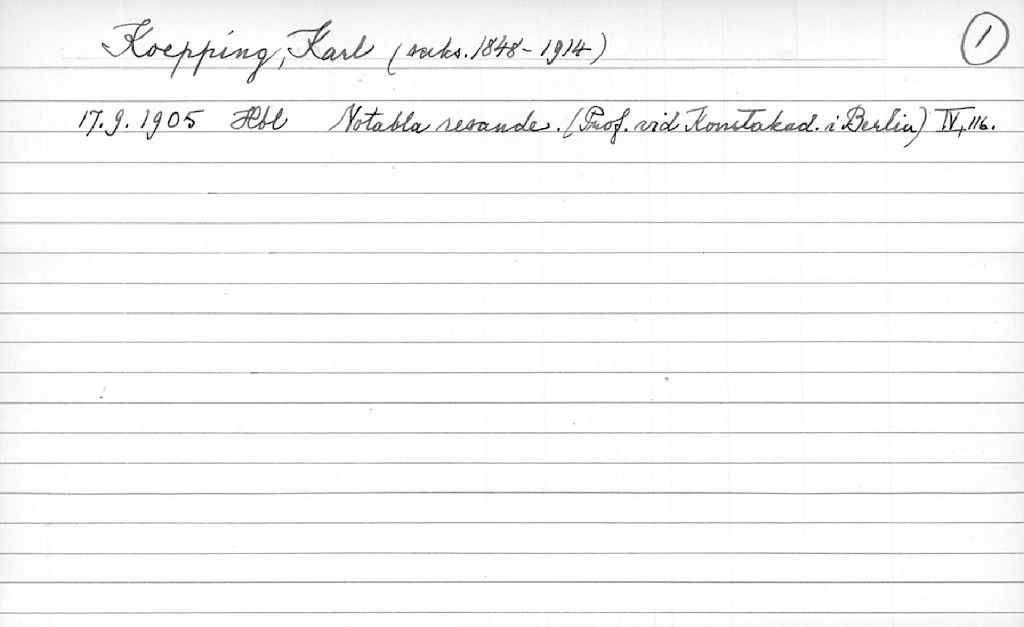 Koepping, Karl (saks. 1848-1914) 1
17.9.1905 Hbl Notabla resande. (Prof. vid Konstakad. i Berlin) IV, 116.